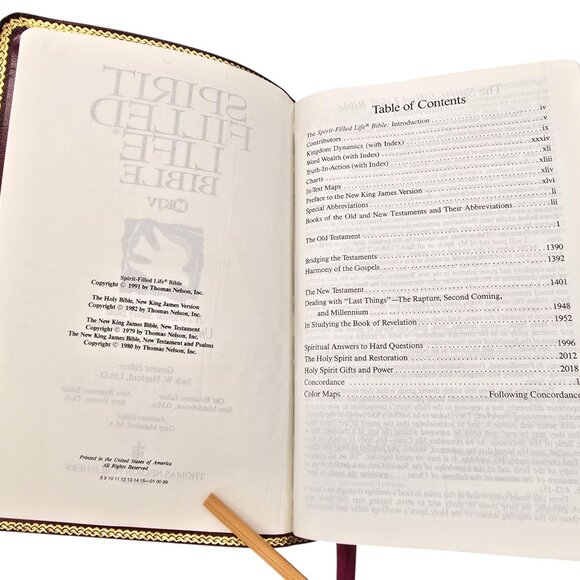 Spirit-Filled Life® Bible
Copyright © 1991 by Thomas Nelson, Inc.
The Holy Bible, New King James Version
Copyright © 1982 by Thomas Nelson, Inc.
The New King James Bible, New Testament
Copyright © 1979 by Thomas Nelson, Inc.
The New King James Bible, New Testament and Psalms
Copyright © 1980 by Thomas Nelson, Inc.
Printed in the United States of America
All Rights Reserved
8 9 10 11 12 13 14 15—01 00 99
Table of Contents
The Spirit-Filled Life® Bible: Introduction iv
Contributors v
Kingdom Dynamics (with Index) ix
Word Wealth (with Index) xxxiv
Truth-In-Action (with Index) xli
Charts xliii
In-Text Maps xliv
Preface to the New King James Version xlvi
Special Abbreviations li
Books of the Old and New Testaments and Their Abbreviations lii
The Old Testament 1
Bridging the Testaments 1390
Harmony of the Gospels 1392
The New Testament 1401
Dealing with "Last Things"—The Rapture, Second Coming,
and Millennium 1948
In Studying the Book of Revelation 1952
Spiritual Answers to Hard Questions 1996
The Holy Spirit and Restoration 2012
Holy Spirit Gifts and Power 2018
Concordance 1
Color Maps Following Concordance